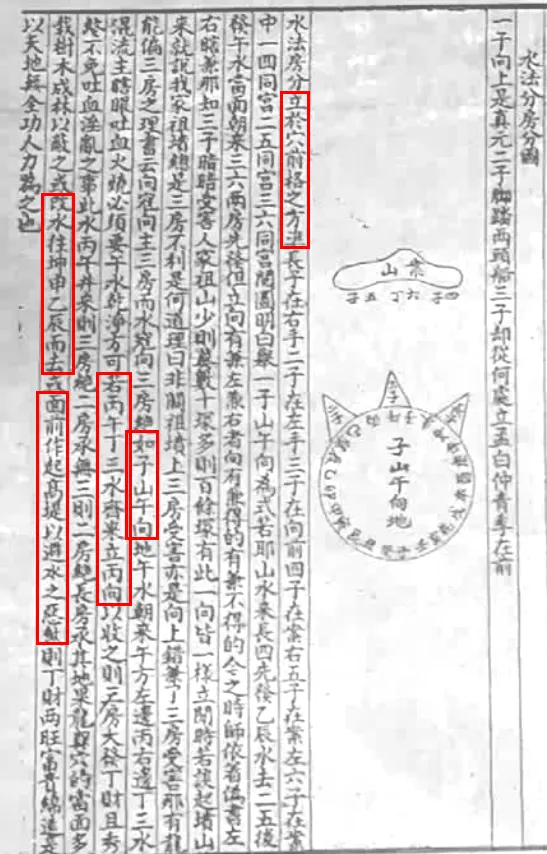 水法分房分圖
一干向上是真元二子腳踏兩頭船三子却從何處立孟白仲青季在前
案山
四子 六 丁 五子
子山午向地
水法房分立於穴前格之方準長子在右手二子在左手三子在向前四子在案右五子在案左六子在案
中一四同宮二五同宮三六同宮閱圖明白舉一子山午向為式若耶山水来長四先發乙辰水去二五後
發午水當面朝来三六兩房先後但立向有兼左兼右者向有兼得的有兼不得的今之時師依着偽書左
右暗兼那知三子暗暗受害人家祖山少則墓數十塚多則百餘塚有此一向皆一樣立開時若談起墳山
来就說我家祖墳總是三房不利是何道理曰非關祖墳上三房受害亦是向上錯兼了三房受害那有龍
能偏三房之理書云向冠向主三房而水冠向三房絶如子山午向地午水朝来午方左邊丙右邊丁三水
混流主瞎眼吐血火燒必須要午水乾淨方可若丙午丁三水齊来立丙向以收之則三房大發丁財且秀
終不免吐血淫亂之事此水丙午并来則三房絶二房承無三則二房絶長房承其地果龍真穴的當面多
栽樹木成林以蔽之或改水往坤申乙辰而去或面前作起高堤以避水之惡煞則丁財兩旺富貴綿遠是
以天地無全功人力為之也